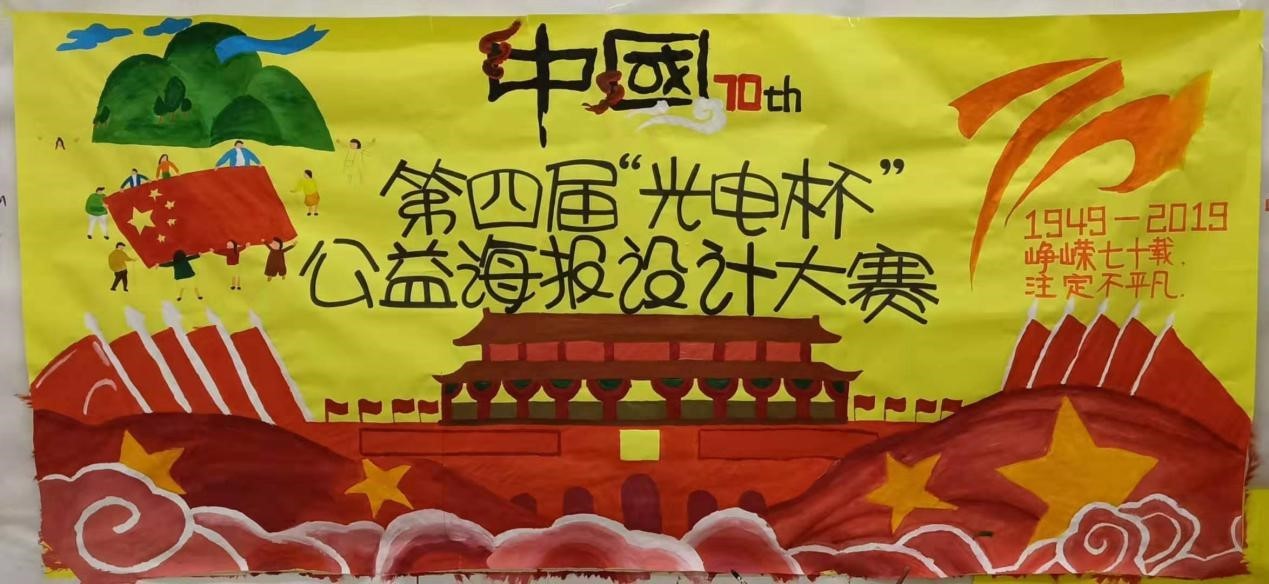 中國70th
第四届“光电杯”
公益海报设计大赛
1949-2019
峥嵘七十载.
注定不平凡.